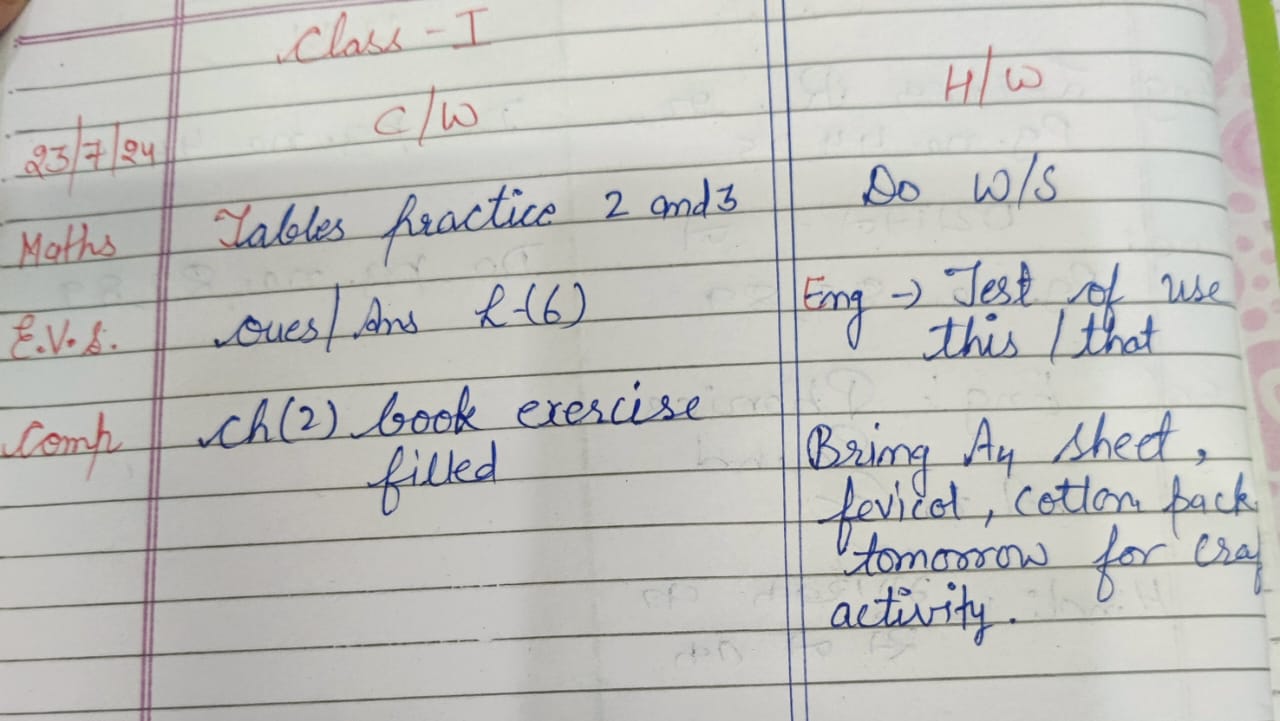 Class - I
C/W
H/W
23/7/24
Maths
Tables practice 2 and 3
Do W/S
E.V.S.
Ques/Ans L-(6)
Eng → Test of use
this / that
Comp
Ch(2) book exercise
filled
Bring A4 sheet,
fevicol, cotton pack
tomorrow for craf
activity.